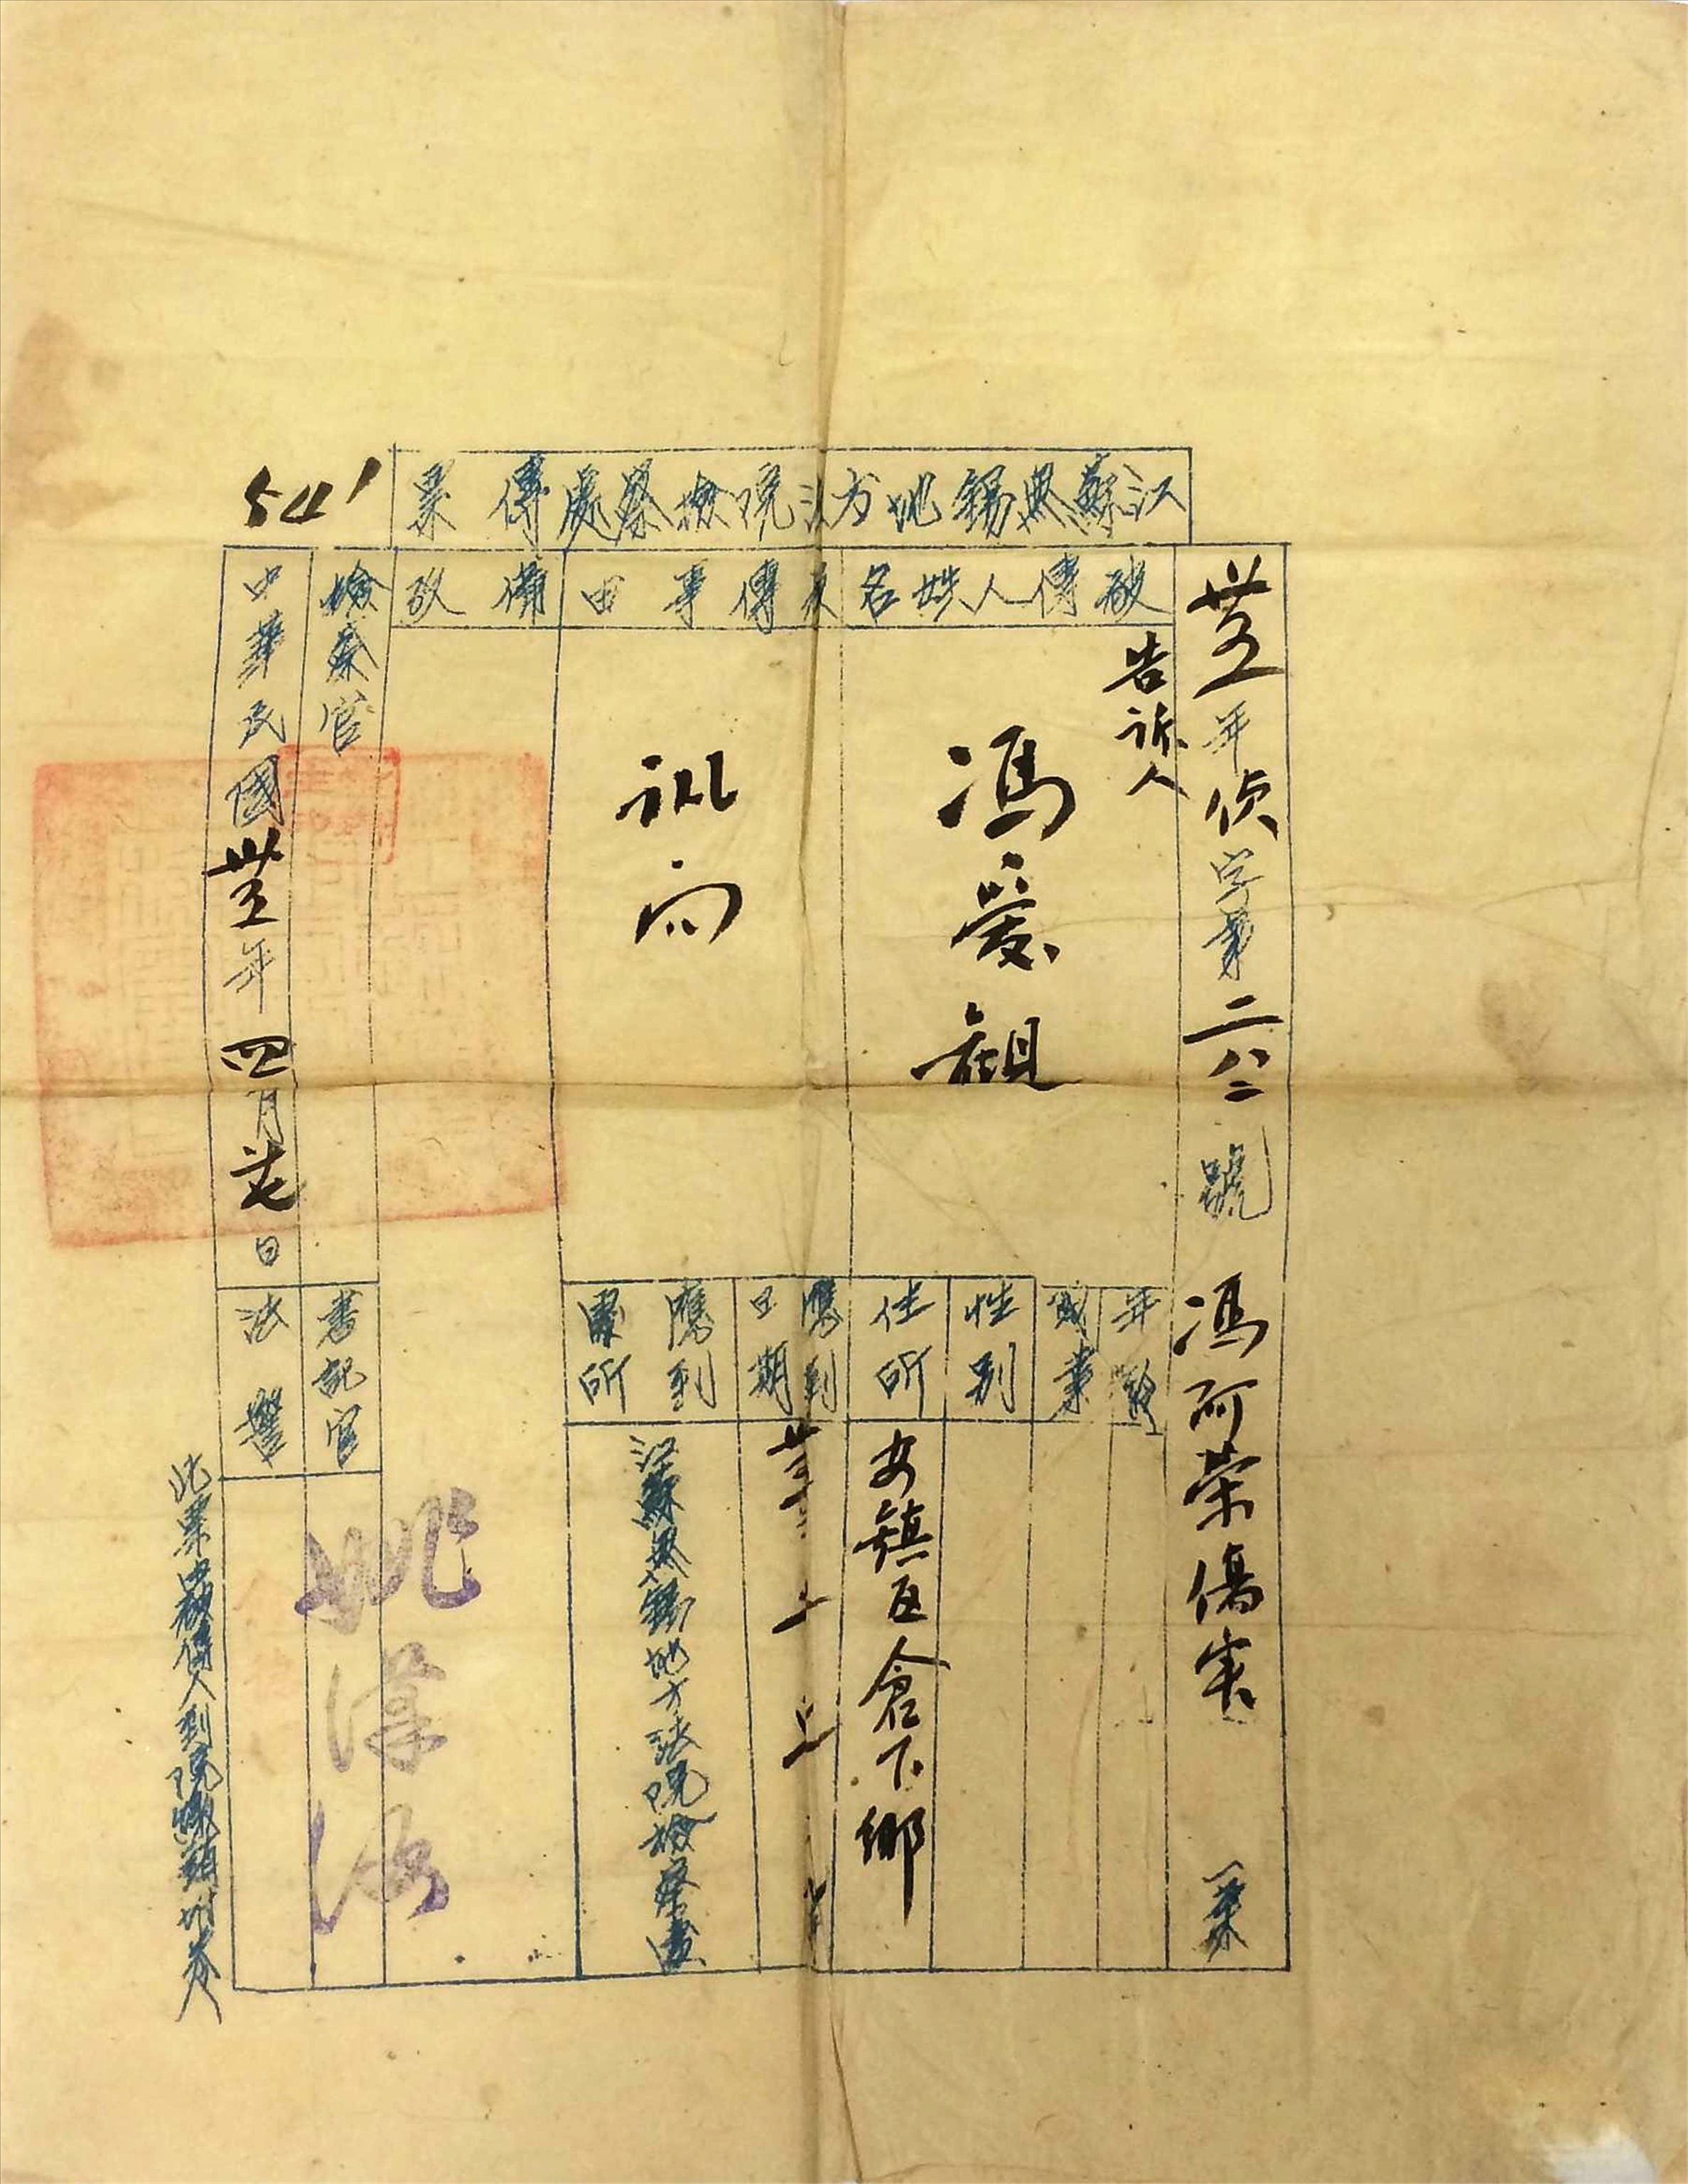 江蘇無錫地方法院檢察處傳票
541
卅五年偵字第二八二號 馮阿榮傷害 一案
被傳人姓名
告訴人
馮愛祖
年齡
職業
性別
住所
安鎮區倉下鄉
被傳事由
訊問
應到
日期
應到
處所
江蘇無錫地方法院檢察處
備攷
檢察官
書記官
姚漢海
中華民國卅五年四月廿七日
法警
此票由被傳人到院繳銷